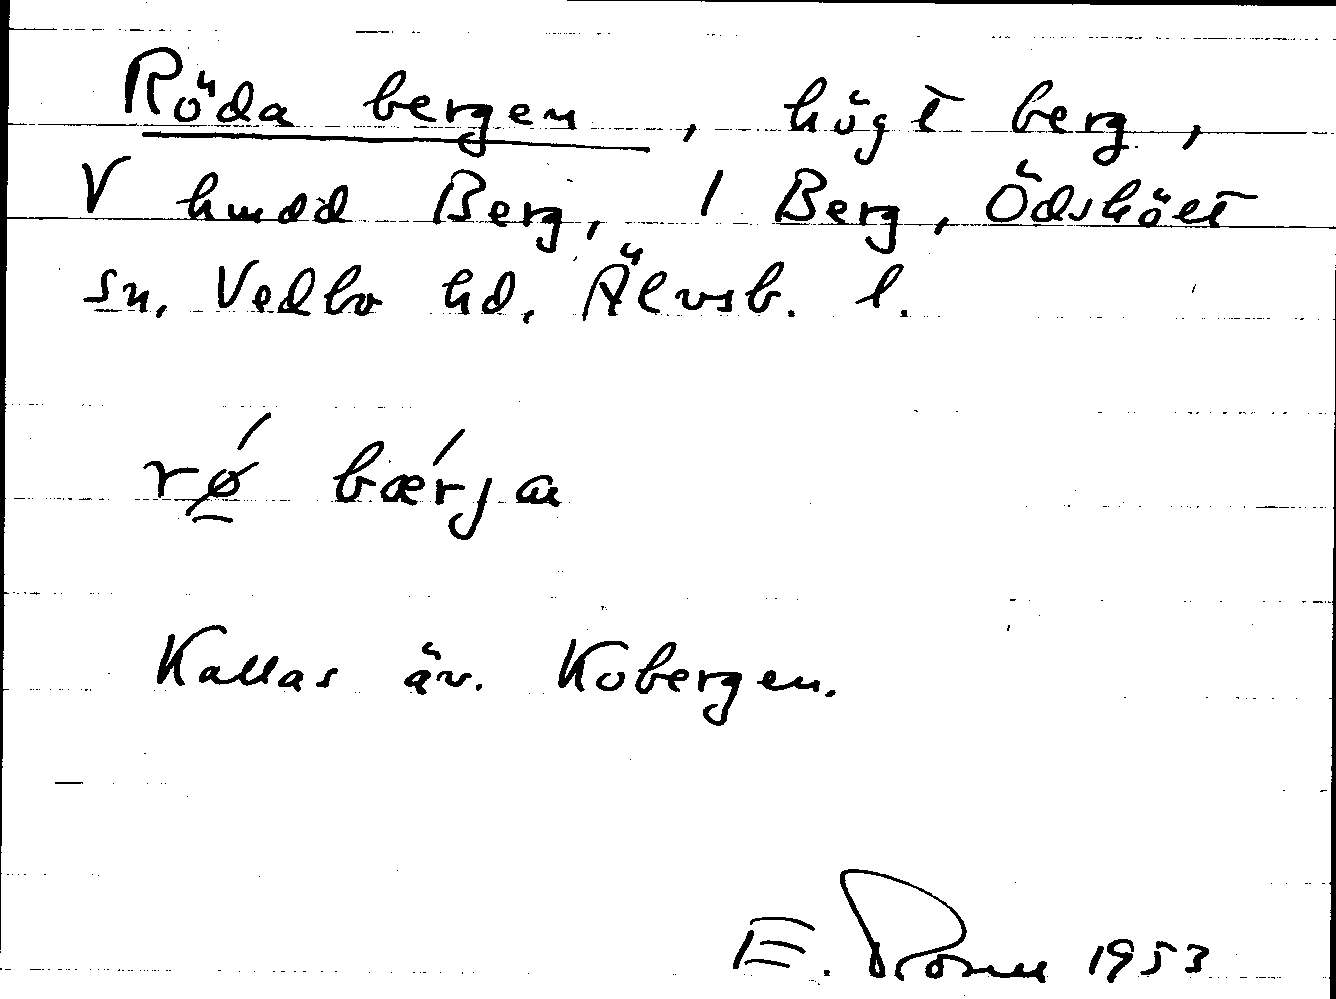 Röda bergen, högt berg,
V hmdd Berg, 1 Berg, Ödskölt
sn. Vedbo hd, Älvsb. l.
rǿ bǽrja
Kallas äv. Kobergen.
E. 1953